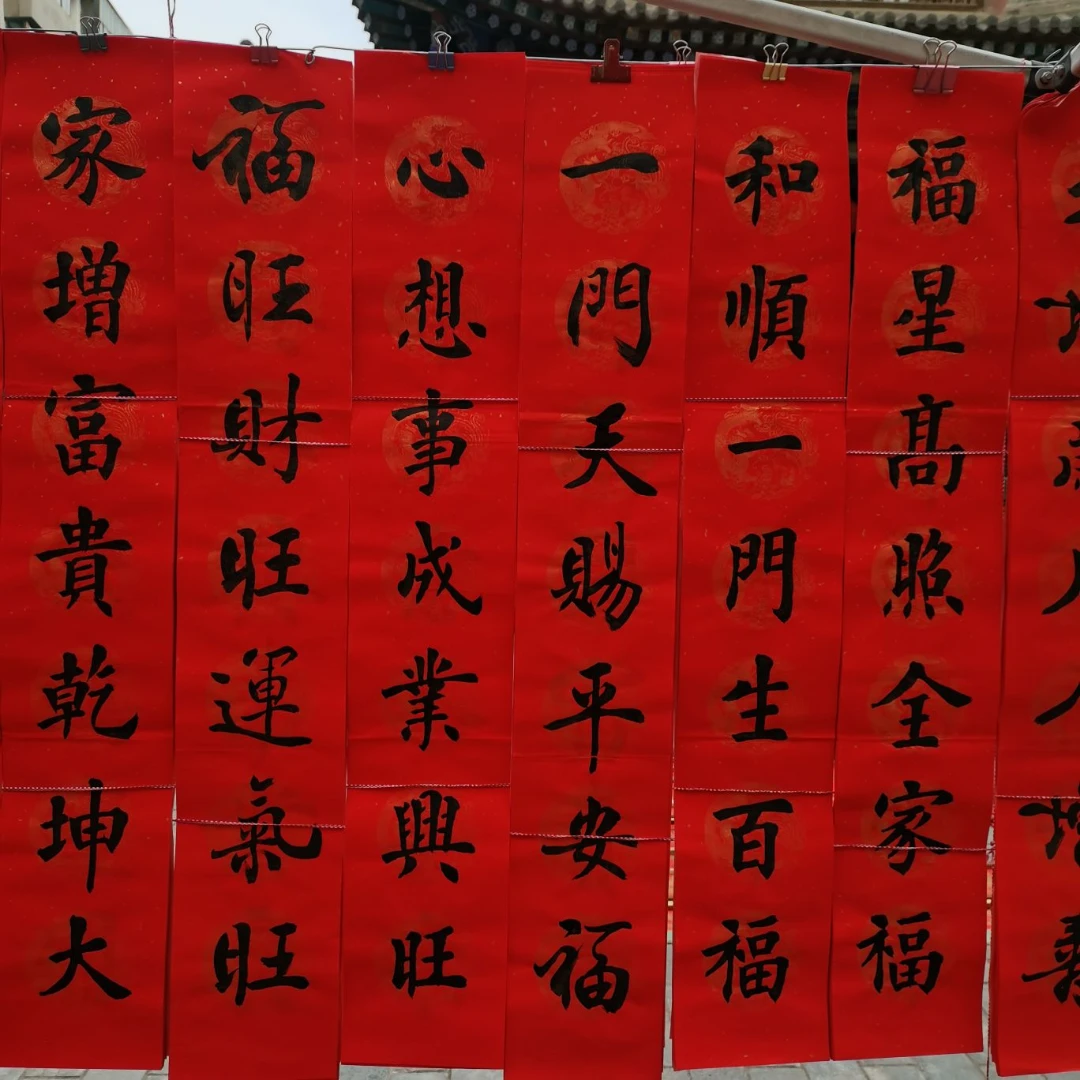 福星高照全家福
和順一門生百福
一門天賜平安福
心想事成業興旺
福旺財旺運氣旺
家增富貴乾坤大